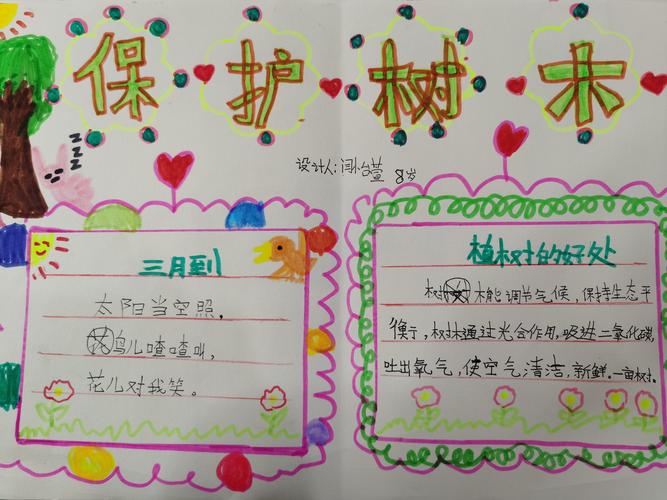 保护树木
设计人:闫小台萱 8岁
三月到
太阳当空照,
鸟儿喳喳叫,
花儿对我笑。
植树的好处
树木能调节气候,保持生态平
衡,树木通过光合作用,吸进二氧化碳,
吐出氧气,使空气清洁,新鲜.一亩树
zzz